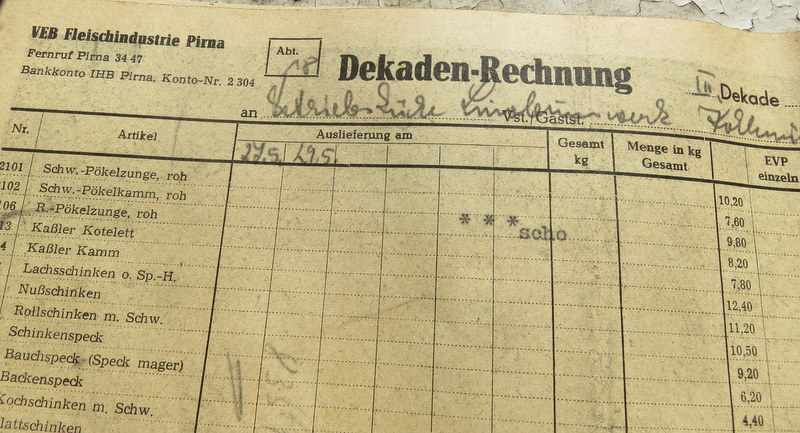 VEB Fleischindustrie Pirna
Fernruf Pirna 34 47
Bankkonto IHB Pirna, Konto-Nr. 2 304
Abt.
18
Dekaden-Rechnung
III Dekade
an Betriebsküche
Vst./Gastst.
Nr. Artikel Auslieferung am Gesamt kg Menge in kg Gesamt EVP einzeln
27.5. 29.5.
2101 Schw.-Pökelzunge, roh 10,20
102 Schw.-Pökelkamm, roh 7,60
06 R.-Pökelzunge, roh 9,80
13 Kaßler Kotelett 8,20
4 Kaßler Kamm 7,80
Lachsschinken o. Sp.-H. 12,40
Nußschinken 11,20
Rollschinken m. Schw. 10,50
Schinkenspeck 9,20
Bauchspeck (Speck mager) 6,20
Backenspeck 4,40
Kochschinken m. Schw.
lattschinken
* * *
scho